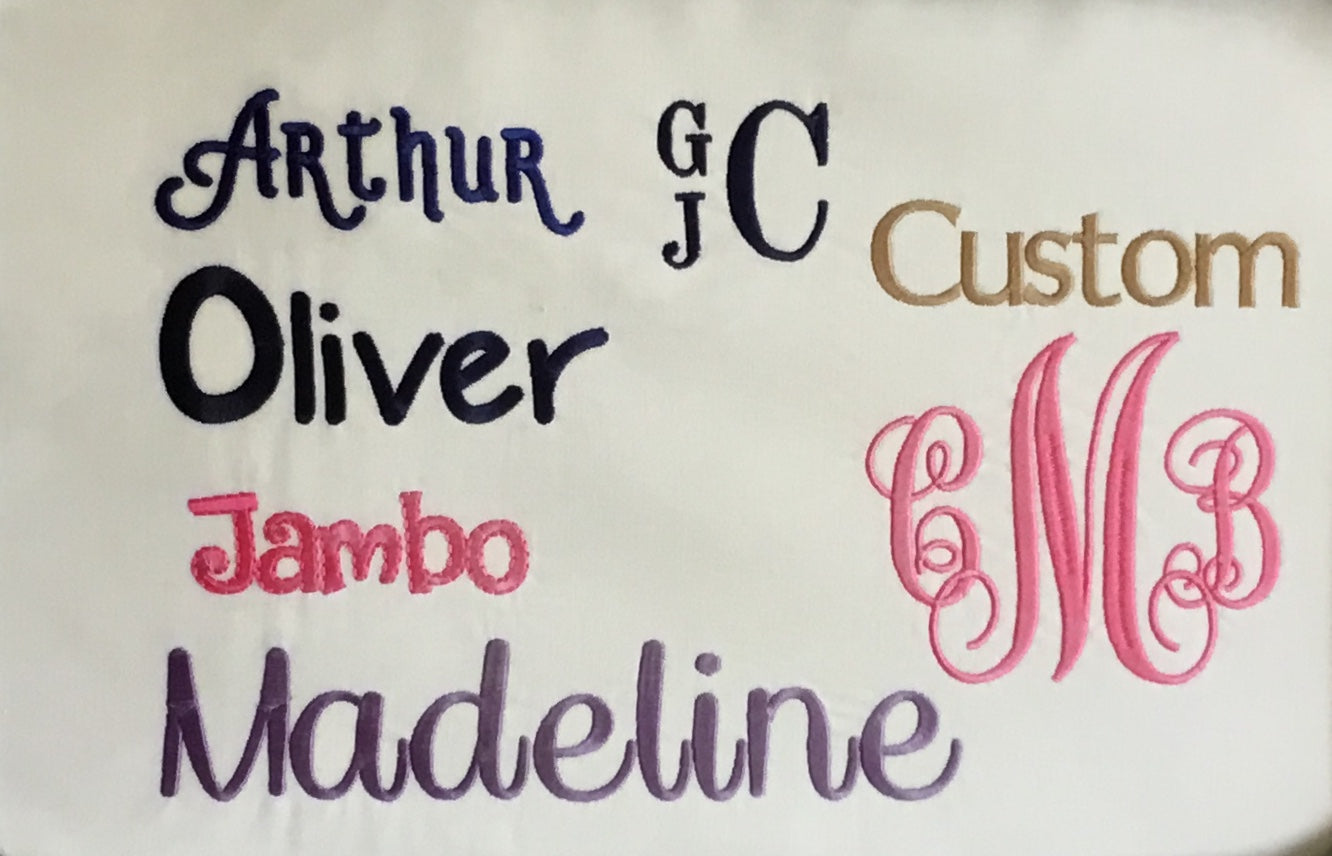 Arthur
G
J
C
Custom
Oliver
Jambo
CMB
Madeline